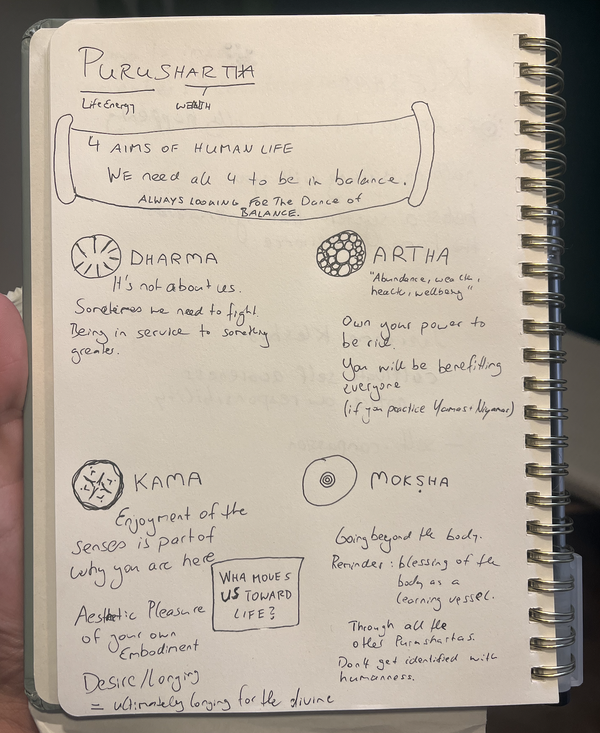 PURUSHARTHA
Life Energy
WEALTH
4 AIMS OF HUMAN LIFE
WE need all 4 to be in balance.
ALWAYS LOOKING FOR THE Dance of
BALANCE.
DHARMA
It's not about us.
Sometimes we need to fight.
Being in service to something
greater.
ARTHA
"Abundance, wealth,
health, wellbeing"
Own your power to
be rich.
You will be benefitting
everyone
(if you practice Yamas + Niyamas)
KAMA
Enjoyment of the
senses is part of
why you are here
Aesthetic Pleasure
of your own
Embodiment
Desire/Longing
= ultimately longing for the divine
WHA MOVES
US TOWARD
LIFE?
MOKṢHA
Going beyond the body.
Reminder: blessing of the
body as a
learning vessel.
Through all the
other Purushartas.
Don't get identified with
humanness.